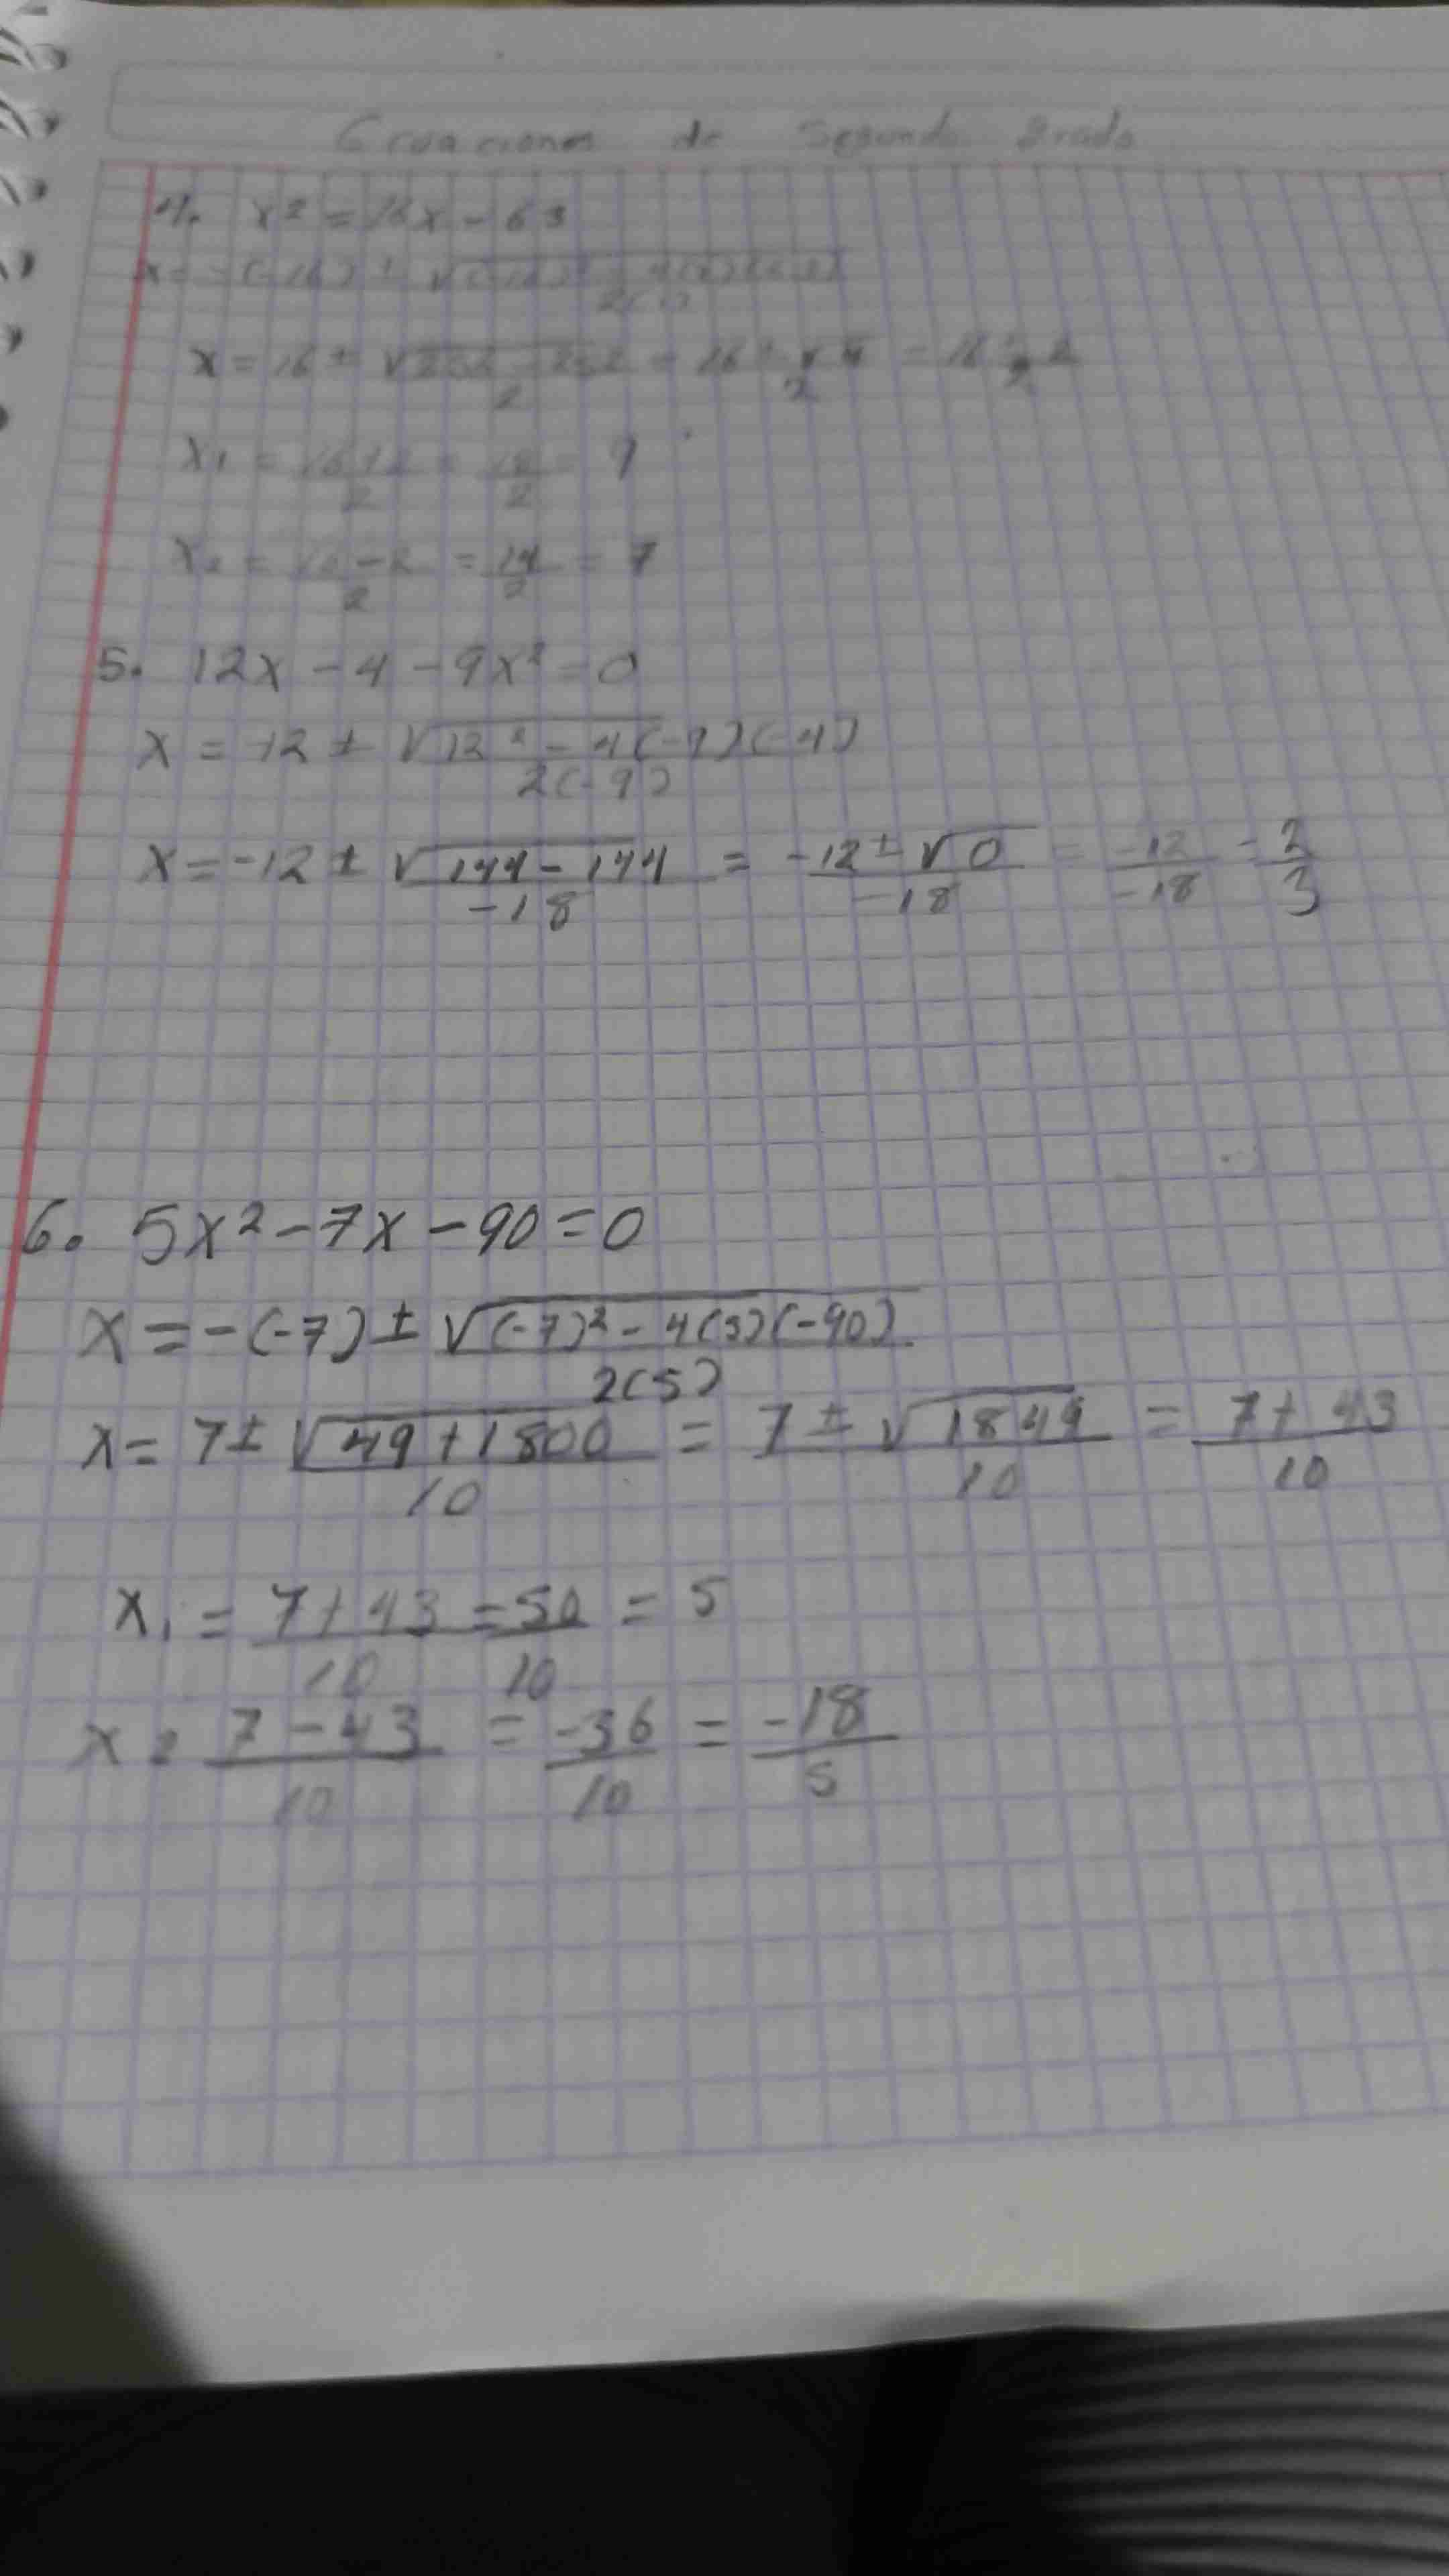 Ecuaciones de Segundo Grado
4. x² = 16x - 63
x = -(-16) ± √(-16)² - 4(1)(63) / 2(1)
x = 16 ± √256 - 252 / 2 = 16 ± √4 / 2 = 16 ± 2 / 2
x₁ = 16+2 / 2 = 18 / 2 = 9
x₂ = 16-2 / 2 = 14 / 2 = 7
5. 12x - 4 - 9x² = 0
x = -12 ± √12² - 4(-9)(-4) / 2(-9)
x = -12 ± √144 - 144 / -18 = -12 ± √0 / -18 = -12 / -18 = 2 / 3
6. 5x² - 7x - 90 = 0
x = -(-7) ± √(-7)² - 4(5)(-90) / 2(5)
x = 7 ± √49 + 1800 / 10 = 7 ± √1849 / 10 = 7 + 43 / 10
x₁ = 7 + 43 / 10 = 50 / 10 = 5
x₂ 7 - 43 / 10 = -36 / 10 = -18 / 5